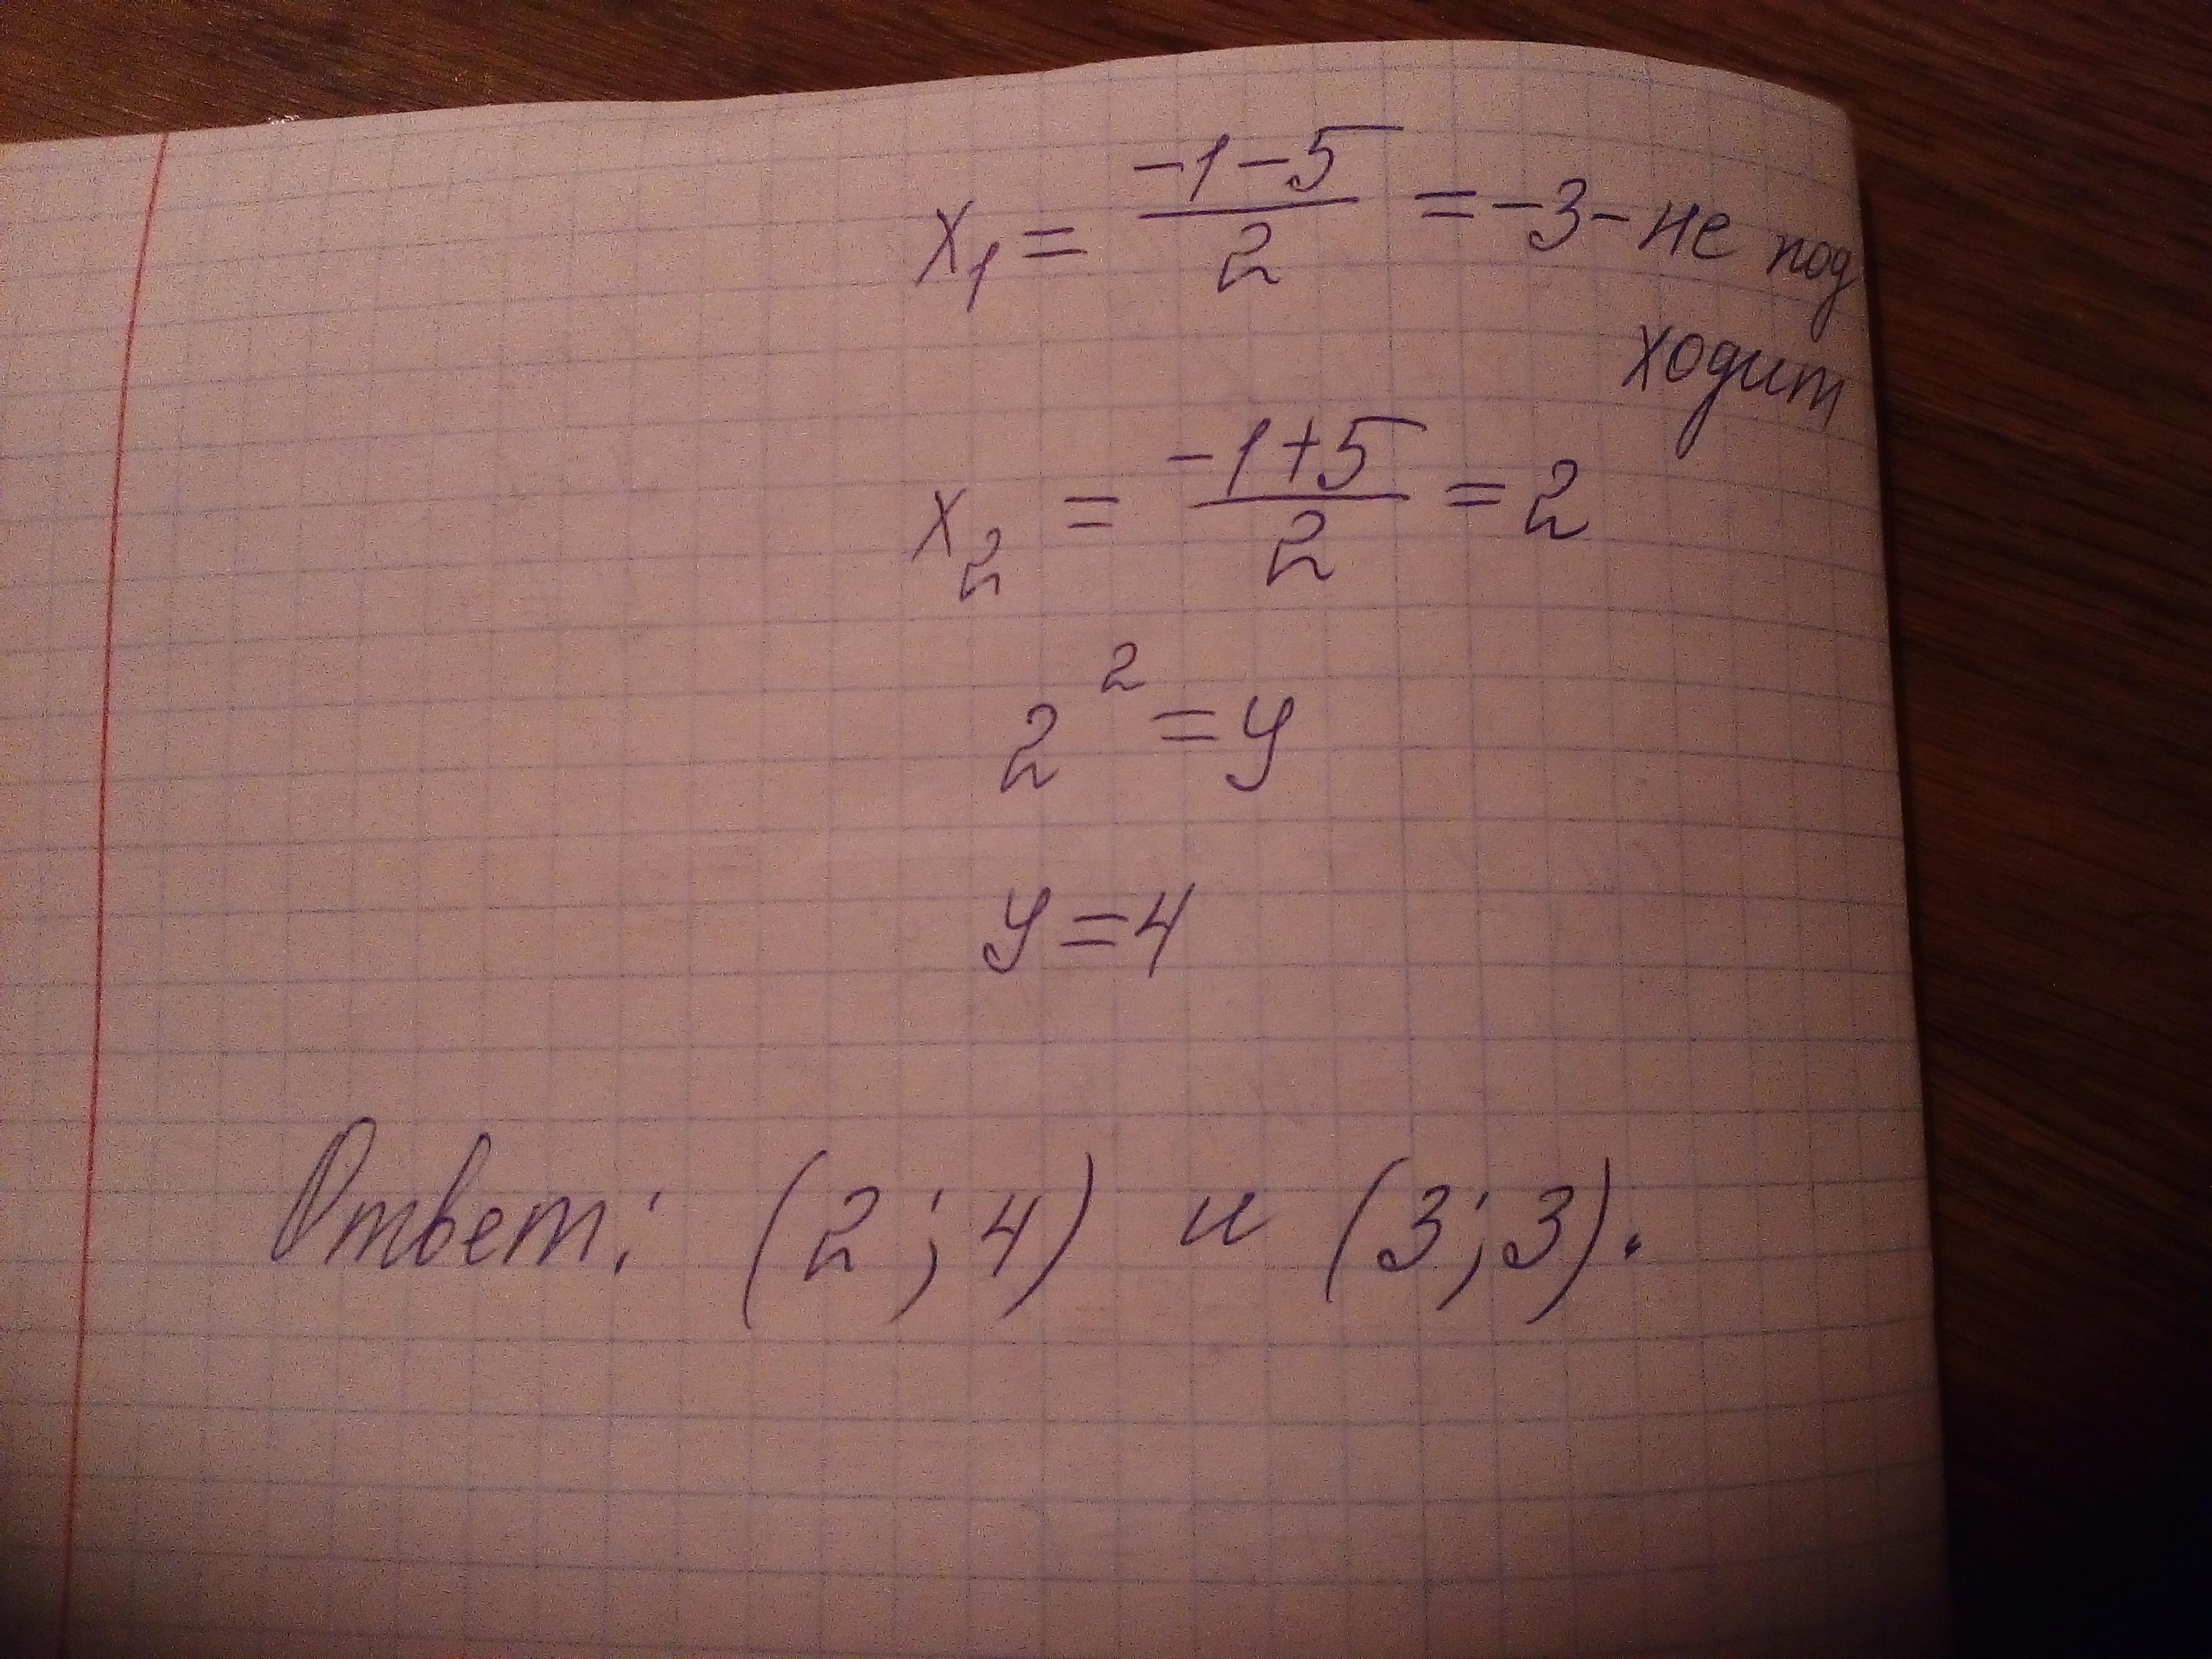 x₁ = (-1-5)/2 = -3 - не под
ходит
x₂ = (-1+5)/2 = 2
2² = y
y = 4
Ответ: (2; 4) и (3; 3).